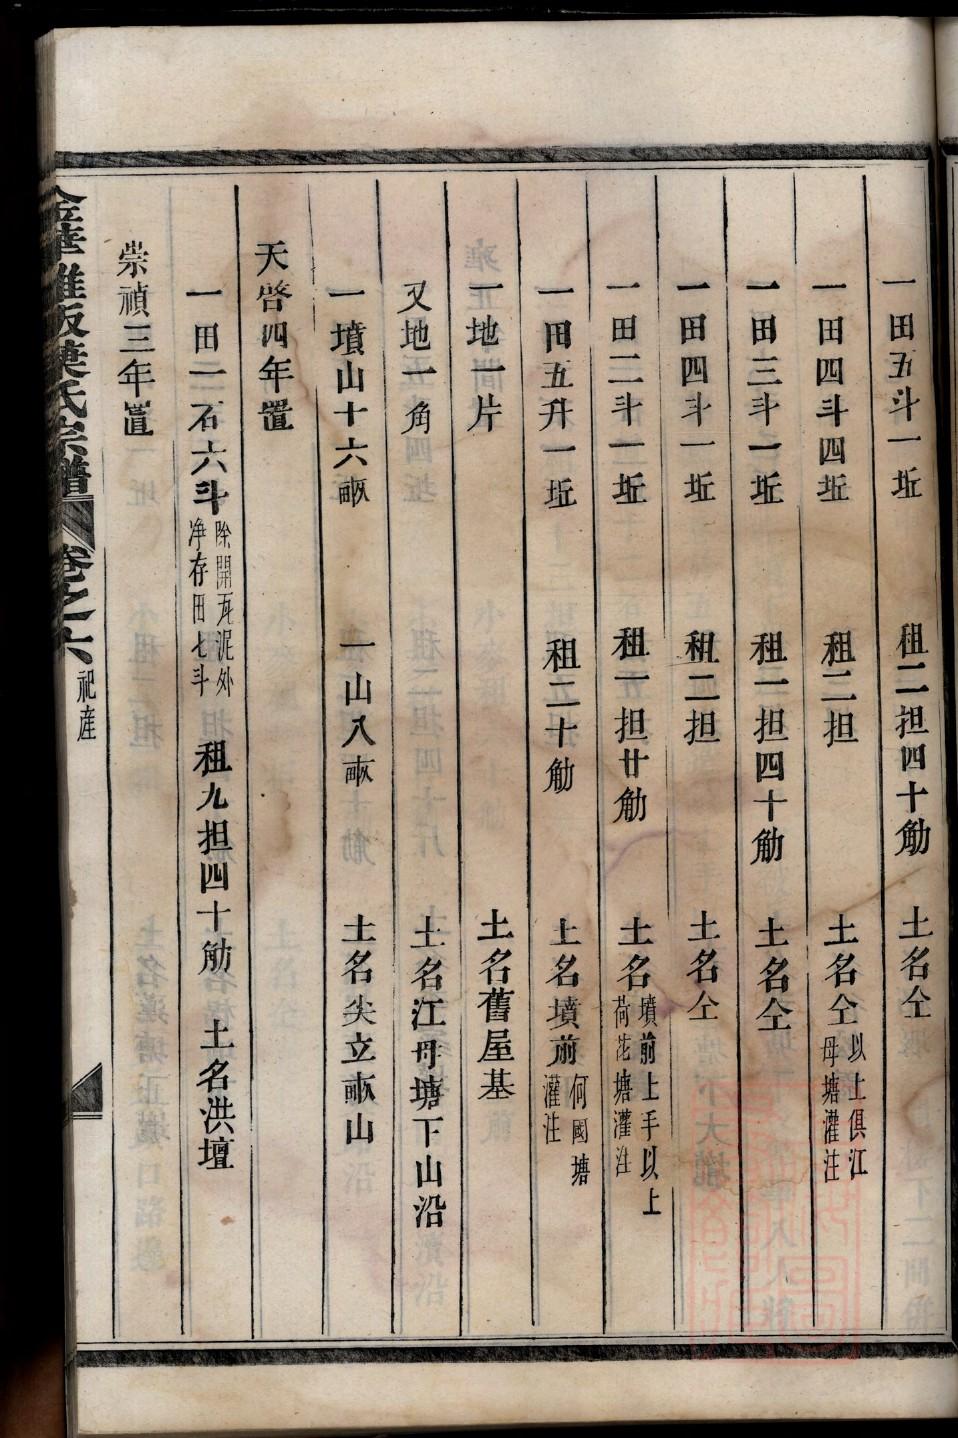 一田五斗一坵 租二担四十觔 土名仝
一田四斗四坵 租二担 土名仝 以上俱江母塘灌注
一田三斗一坵 租一担四十觔 土名仝
一田四斗一坵 租二担 土名仝
一田二斗二坵 租一担廿觔 土名 墳前上手以上荷花塘灌注
一田五升一坵 租二十觔 土名墳前 何國塘灌注
一地一片 土名舊屋基
又地一角 土名江母塘下山沿
一墳山十六畝 一山八畝 土名尖立畝山
天啓四年置
一田二石六斗 除開瓦泥外净存田七斗 租九担四十觔 土名洪壇
崇禎三年置
金華雅畈葉氏宗譜 卷之六 祀産